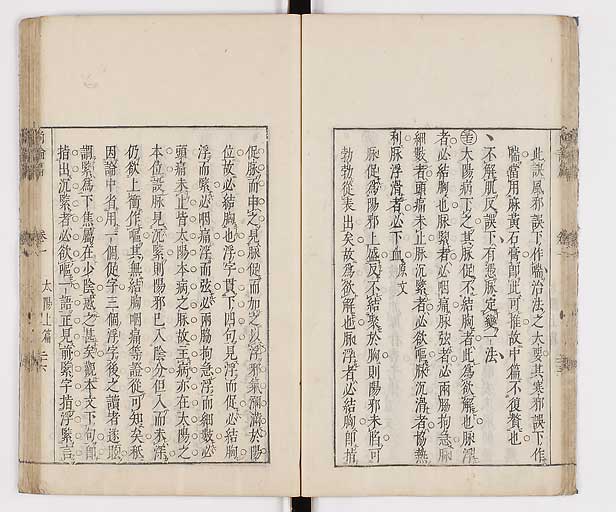 此誤風邪誤下作喘治法之大要其寒邪誤下作
喘當用麻黃石膏卽此可推故中篇不復贅也
不解肌反誤下有憑脉定變一法
太陽病下之其脉促不結胸者此爲欲解也脉浮
者必結胸也脉緊者必咽痛脉弦者必兩脇拘急脉
細數者頭痛未止脉沉緊者必欲嘔脉沉滑者協熱
利脉浮滑者必下血原文
脉促爲陽邪上盛反不結聚於胸則陽邪未陷可
勃勃從表出矣故爲欲解也脉浮者必結胸卽指
促脉而申之見脉促而加之以浮邪氣瀰滿於陽
位故必結胸也浮字貫下四句見浮而促必結胸
浮而緊必咽痛浮而弦必兩脇拘急浮而細數必
頭痛未止皆太陽本病之脉故主病亦在太陽之
本位設脉見沉緊則陽邪已入陰分但入而未深
仍欲上衝作嘔其無結胸咽痛等證從可知矣秪
因論中省用一個促字三個浮字後之讀者遂眩
謂緊爲下焦屬在少陰惑之甚矣觀本文下句卽
指出沉緊者必欲嘔一語正見前緊字指浮緊言
卷一
太陽上篇
二六